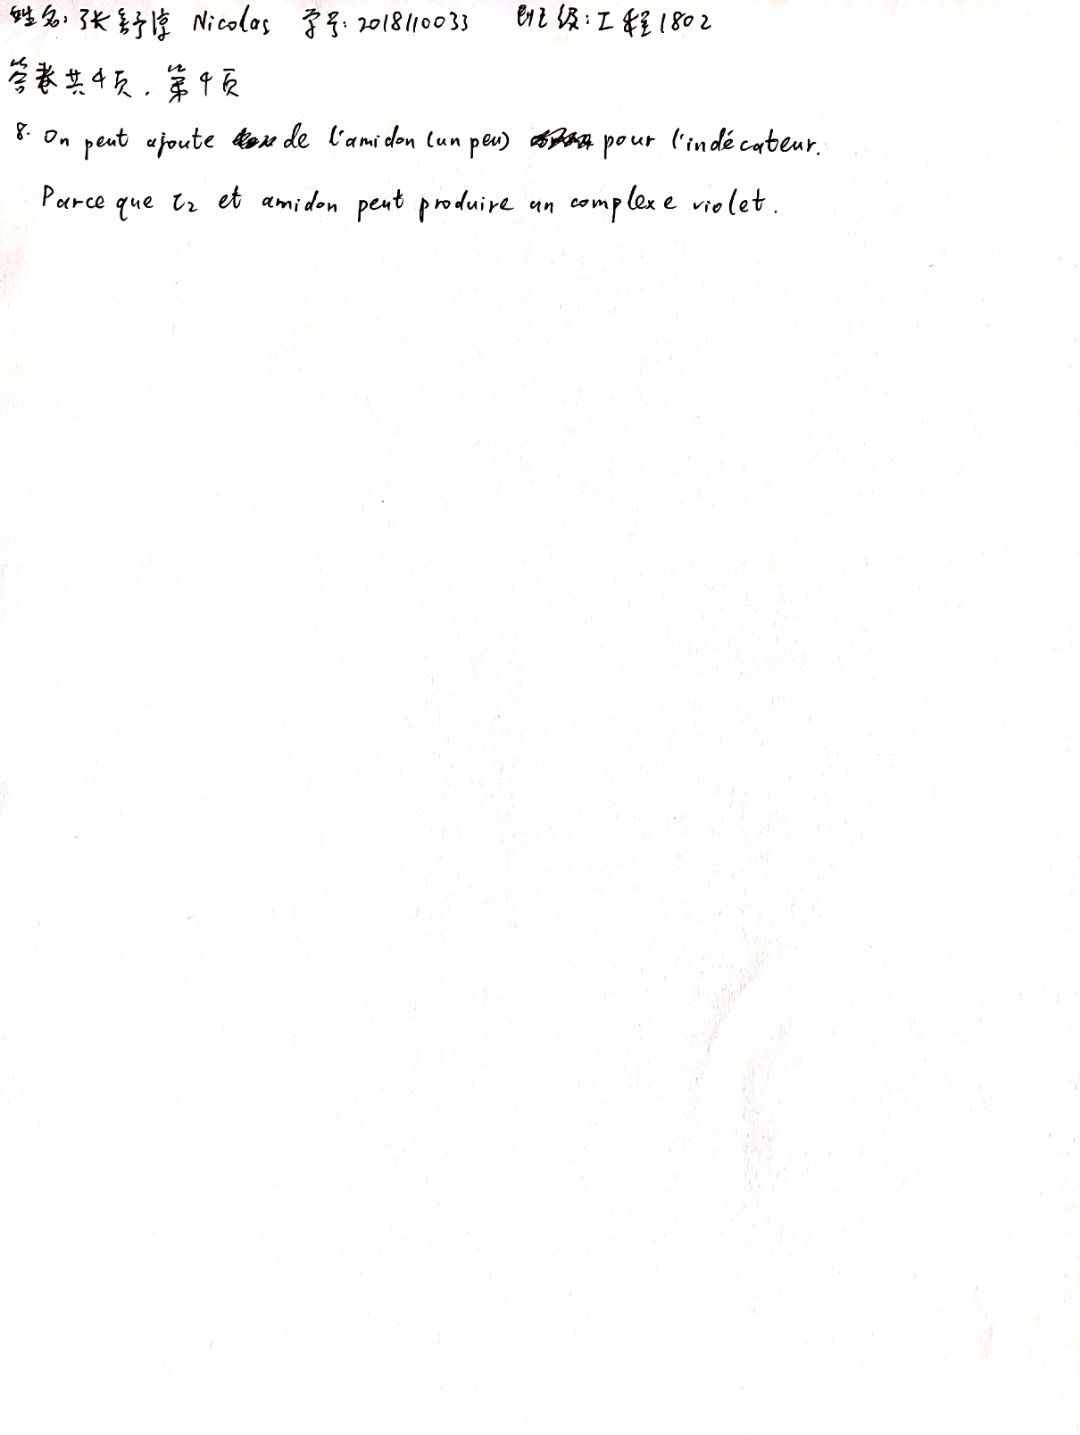 姓名：张舒淳 Nicolas 学号：2018110033 班级：工程1802
答卷共4页．第4页
8. On peut ajoute de l'amidon (un peu) pour l'indécateur.
Parce que I2 et amidon peut produire un complexe violet.